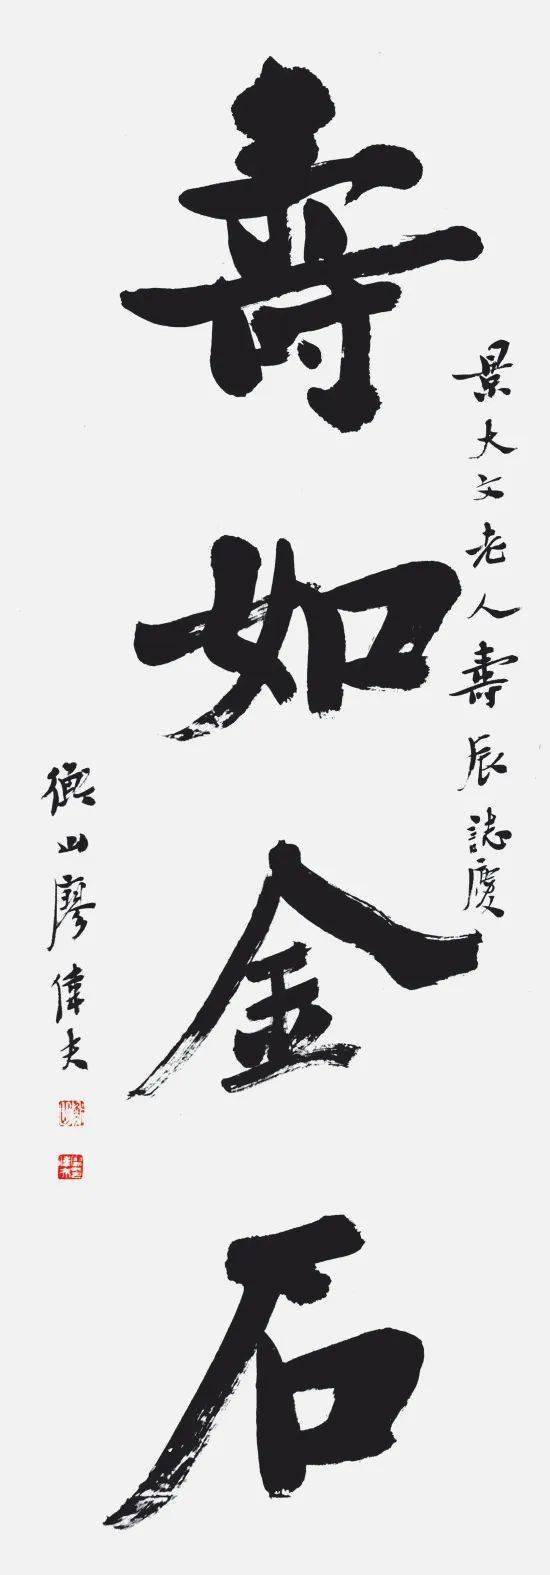 景大文老人壽辰誌慶
壽如金石
衡山廖偉夫